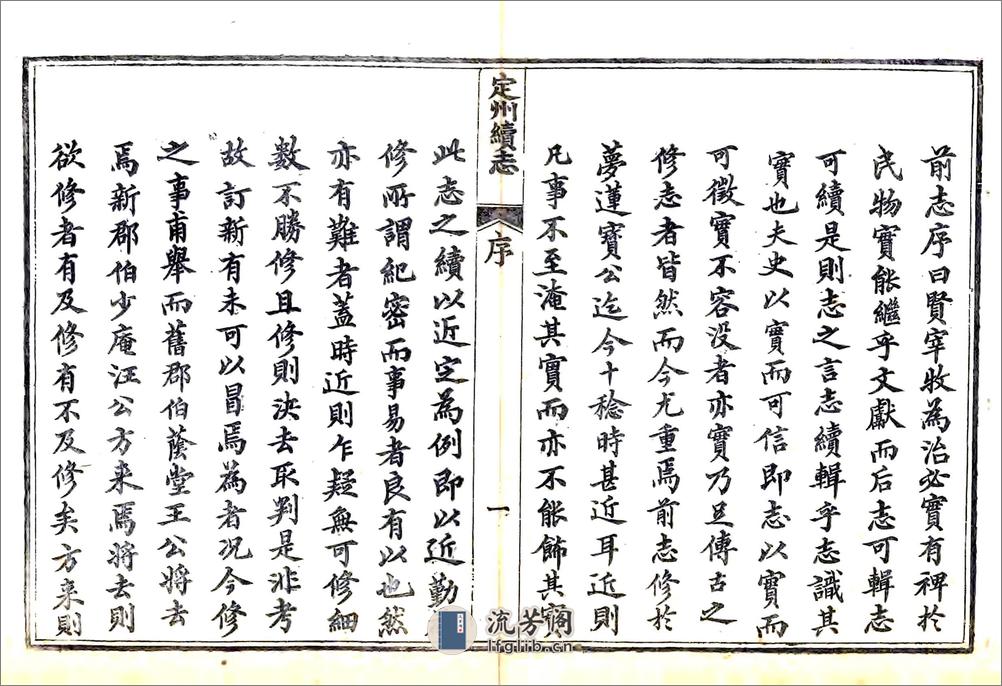 前志序曰賢宰牧為治必實有裨於
民物實能繼乎文獻而后志可輯志
可續是則志之言志續輯乎志識其
實也夫史以實而可信即志以實而
可徵實不容没者亦實乃足傳古之
修志者皆然而今尤重焉前志修於
夢蓮寶公迄今十稔時甚近耳近則
凡事不至淹其實而亦不能飾其實
定州續志
序
一
此志之續以近定為例即以近勤
修所謂紀密而事易者良有以也然
亦有難者蓋時近則乍疑無可修細
數不勝修且修則決去取判是非考
故訂新有未可以冒焉為者況今修
之事甫舉而舊郡伯蔭堂王公將去
焉新郡伯少庵汪公方来焉將去則
欲修者有及修有不及修矣方来則
流芳閣
lfglib.cn